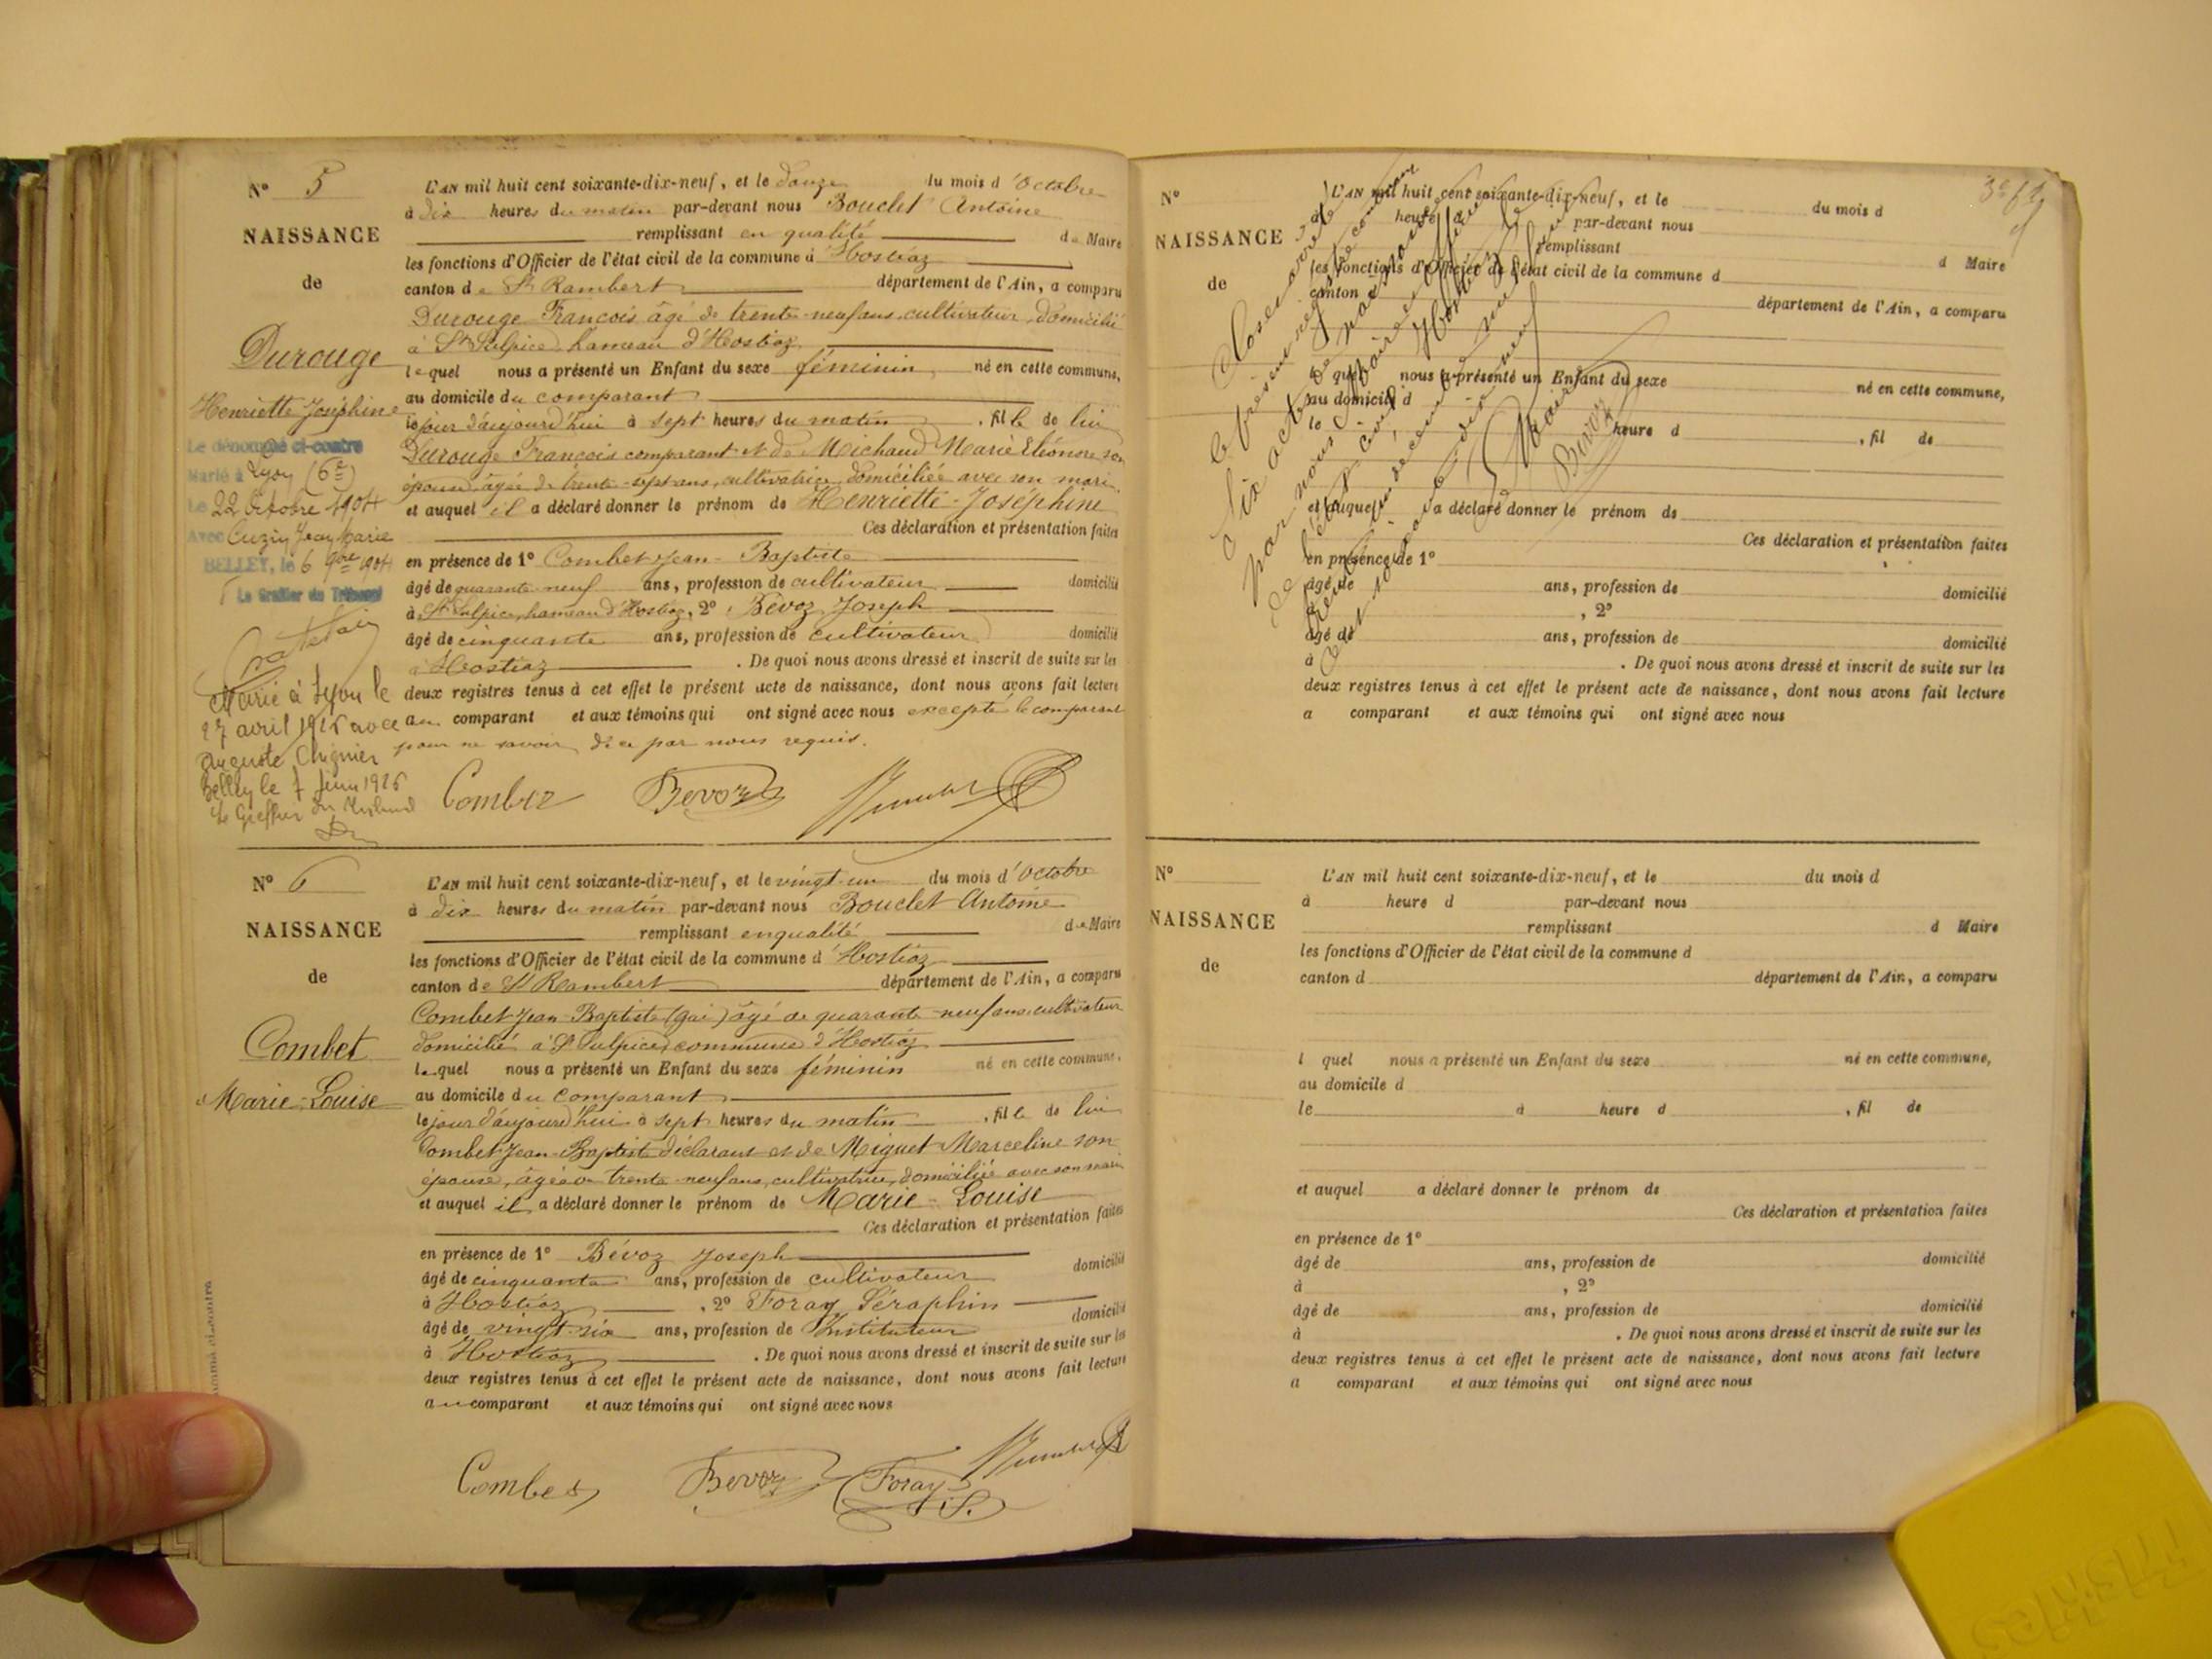 N° 5
NAISSANCE
de
Durouge
Henriette Joséphine
Le dénommé ci-contre
Marié à Lyon (6e)
Le 22 Octobre 1904
Avec Cuziy Jean Marie
BELLEY, le 6 9bre 1904
Le Greffier du Tribunal
Marié à Lyon le
27 avril 1926 avec
Auguste Chignier
Belley le 7 Juin 1926
Le Greffier du Tribunal
L'AN mil huit cent soixante-dix-neuf, et le douze du mois d'Octobre
à dix heures du matin par-devant nous Bouclet Antoine
remplissant en qualité de Maire
les fonctions d'Officier de l'état civil de la commune d'Hostiaz
canton de St Rambert département de l'Ain, a comparu
Durouge François âgé de trente-neuf ans, cultivateur, domicilié
à St Sulpice, hameau d'Hostiaz
lequel nous a présenté un Enfant du sexe féminin né en cette commune,
au domicile du comparant
le jour d'aujourd'hui à sept heures du matin, fille de lui
Durouge François comparant et de Michaud Marie Eléonore son
épouse, âgée de trente-sept ans, cultivatrice, domiciliée avec son mari.
et auquel il a déclaré donner le prénom de Henriette-Joséphine
Ces déclaration et présentation faites
en présence de 1° Combet Jean-Baptiste
âgé de quarante-neuf ans, profession de cultivateur domicilié
à St Sulpice, hameau d'Hostiaz, 2° Bévoz Joseph
âgé de cinquante ans, profession de cultivateur domicilié
à Hostiaz. De quoi nous avons dressé et inscrit de suite sur les
deux registres tenus à cet effet le présent acte de naissance, dont nous avons fait lecture
au comparant et aux témoins qui ont signé avec nous excepté le comparant
pour ne savoir, de ce par nous requis.
Combet Bevoz
N° 6
NAISSANCE
de
Combet
Marie-Louise
L'AN mil huit cent soixante-dix-neuf, et le vingt-un du mois d'Octobre
à dix heures du matin par-devant nous Bouclet Antoine
remplissant en qualité de Maire
les fonctions d'Officier de l'état civil de la commune d'Hostiaz
canton de St Rambert département de l'Ain, a comparu
Combet Jean-Baptiste (gai) âgé de quarante-neuf ans, cultivateur
domicilié à St Sulpice, commune d'Hostiaz
lequel nous a présenté un Enfant du sexe féminin né en cette commune,
au domicile du comparant
le jour d'aujourd'hui à sept heures du matin, fille de lui
Combet Jean-Baptiste déclarant et de Miguet Marceline son
épouse, âgée de trente-neuf ans, cultivatrice, domiciliée avec son mari
et auquel il a déclaré donner le prénom de Marie-Louise
Ces déclaration et présentation faites
en présence de 1° Bévoz Joseph
âgé de cinquante ans, profession de cultivateur domicilié
à Hostiaz, 2° Foray Séraphin
âgé de vingt-six ans, profession de Instituteur domicilié
à Hostiaz. De quoi nous avons dressé et inscrit de suite sur les
deux registres tenus à cet effet le présent acte de naissance, dont nous avons fait lecture
au comparant et aux témoins qui ont signé avec nous
Combet Bevoz Foray S.
N°
NAISSANCE
de
L'AN mil huit cent soixante-dix-neuf, et le du mois d
à heure par-devant nous
remplissant d Maire
les fonctions d'Officier de l'état civil de la commune d
canton d département de l'Ain, a comparu
l quel nous a présenté un Enfant du sexe né en cette commune,
au domicile d
le heure d, fil de
et auquel a déclaré donner le prénom de
Ces déclaration et présentation faites
en présence de 1°
âgé de ans, profession de domicilié
à, 2°
âgé de ans, profession de domicilié
à. De quoi nous avons dressé et inscrit de suite sur les
deux registres tenus à cet effet le présent acte de naissance, dont nous avons fait lecture
a comparant et aux témoins qui ont signé avec nous
Clos et arrêté
le présent registre
à six actes
par nous Maire
Bevoz
N°
NAISSANCE
de
L'AN mil huit cent soixante-dix-neuf, et le du mois d
à heure d par-devant nous
remplissant d Maire
les fonctions d'Officier de l'état civil de la commune d
canton d département de l'Ain, a comparu
l quel nous a présenté un Enfant du sexe né en cette commune,
au domicile d
le à heure d, fil de
et auquel a déclaré donner le prénom de
Ces déclaration et présentation faites
en présence de 1°
âgé de ans, profession de domicilié
à, 2°
âgé de ans, profession de domicilié
à. De quoi nous avons dressé et inscrit de suite sur les
deux registres tenus à cet effet le présent acte de naissance, dont nous avons fait lecture
a comparant et aux témoins qui ont signé avec nous